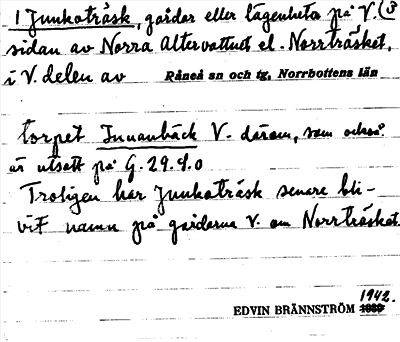 1 Junkoträsk, gårdar eller lägenheter på V. (3
sidan av Norra Altervattnet el. Norrträsket,
i V. delen av Råneå sn och tg, Norrbottens län
torpet Innanbäck V. därom, som också
är utsatt på G. 29.4.0
Troligen har Junkoträsk senare bli-
vit namn på gårdarna V. om Norrträsket.
1942.
EDVIN BRÄNNSTRÖM 1939